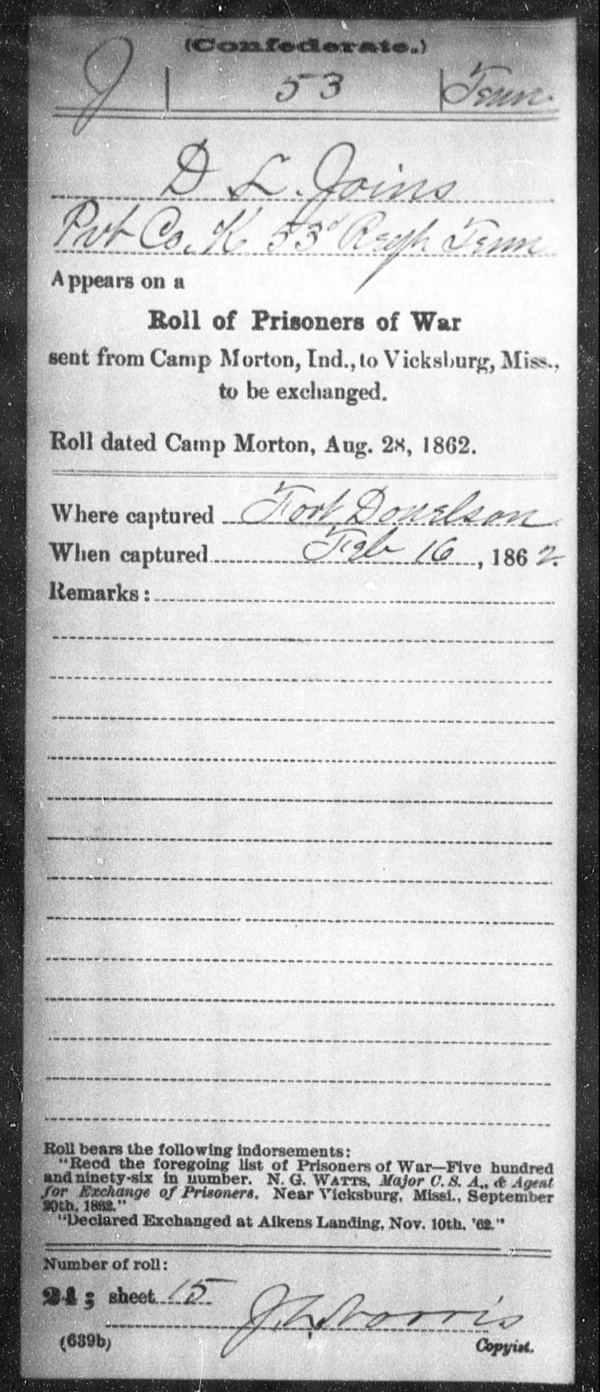 (Confederate.)
J | 53 | Tenn.
D L. Joins
Pvt Co. K 53d Reg't Tenn
Appears on a
Roll of Prisoners of War
sent from Camp Morton, Ind., to Vicksburg, Miss.,
to be exchanged.
Roll dated Camp Morton, Aug. 28, 1862.
Where captured Fort Donelson
When captured Feb 16, 1862.
Remarks:
Roll bears the following indorsements:
"Recd the foregoing list of Prisoners of War—Five hundred
and ninety-six in number. N. G. WATTS, Major C. S. A., & Agent
for Exchange of Prisoners. Near Vicksburg, Missi., September
20th, 1862."
"Declared Exchanged at Aikens Landing, Nov. 10th, '62."
Number of roll:
21; sheet 15
Norris
(639b) Copyist.